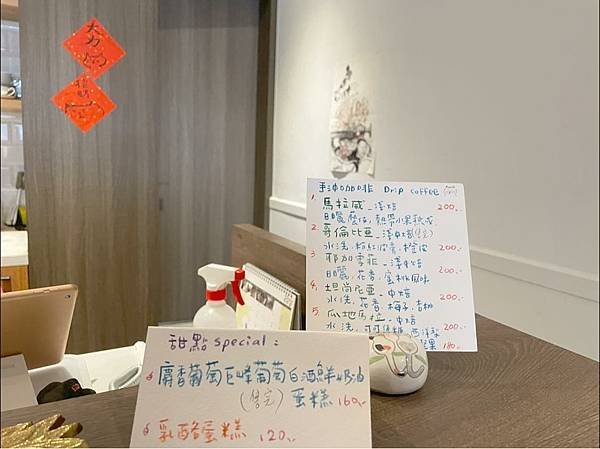 大方
手沖咖啡 Drip coffee
1. 馬拉威 - 淺焙 200.-
日曬, 熱帶水果
2. 哥倫比亞 - 淺中焙(售完) 200.-
水洗, 粉紅
3. 耶加雪菲 - 淺中焙
日曬, 花香, 蜜桃風味 200.-
4. 坦尚尼亞 - 中焙
水洗, 花香, 梅子, 杏桃 200.-
5. 瓜地馬拉 - 中焙
水洗, 180.-
甜點 special:
麝香葡萄巨峰葡萄白酒鮮奶油
(售完) 蛋糕 160.-
乳酪蛋糕 120.-